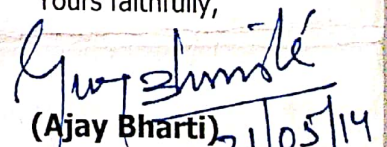 Yours faithfully,
(Ajay Bharti)
21/05/14